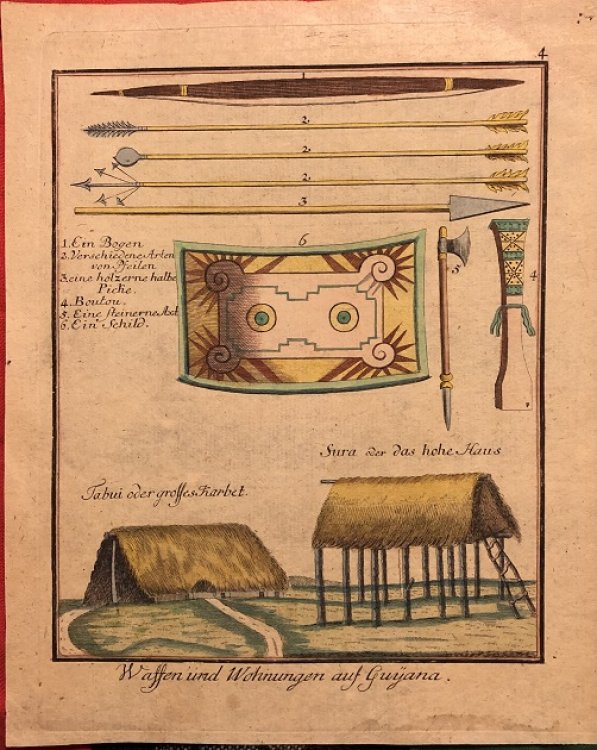 4
1
2.
2.
2.
3
1. Ein Bogen
2. Verschiedene Arten
von Pfeilen
3. eine holzerne halbe
Picke.
4. Boutou.
5. Eine steinerne Axt
6. Ein Schild.
6
5
4
Sura oder das hohe Haus
Tabui oder grosses Karbet.
Waffen und Wohnungen auf Guÿana.